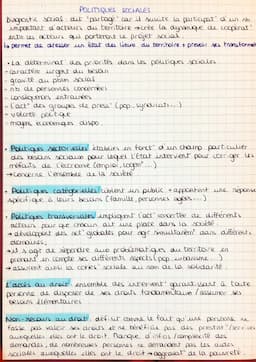 POLITIQUES SOCIALES
Diagnostic social : dit "partagé" car il suscite la participat° d'un nb
important d'acteurs du territoire → crée la dynamique de coopérat°
entre les acteurs qui porteront le projet social.
Il permet de dresser un état des lieux du territoire + prévoir ses transformat
• La déterminat° des priorités dans les politiques sociales
- caractère urgent du besoin
- gravité du pbm social
- nb de personnes concernées
- conséquences entrainées
- l'act° des groupes de press° (pop, syndicats...)
- volonté politique
- moyens économiques dispo.
• Politiques sectorielles établies en fonct° d'un champ particulier
des besoins sociaux pour lequel l'État intervient pour corriger les
méfaits de l'économie (emploi, logemt...)
→ concerne l'ensemble de la société
• Politiques catégorielles ciblent un public + apportent une réponse
spécifique à leurs besoins (famille, personnes âgées...)
• Politiques transversales impliquent l'act° concertée de différents
acteurs pour que chacun ait une place dans la société
→ développent des act° globales pour agir simultanémt dans différents
domaines,
→ il s'agit de répondre aux problématiques du territoire en
prenant en compte ses différents aspects (pop, urbanisme...)
→ assurent ainsi la cohés° sociale au nom de la solidarité
L'accès au droit ensemble des intervent° garantissant à toute
personne de disposer de ses droits fondamentaux / assumer ses
besoins élémentaires
Non-recours au droit définit comme le fait qu'une personne ne
fasse pas valoir ses droits et ne bénéficie pas des prestat°/services
auxquelles elle ont le droit. Manque d'infos / complexité des
demandes, de nombreuses personnes ne demandent pas les aides
sociales auxquelles elles ont le droit → aggravat° de la pauvreté